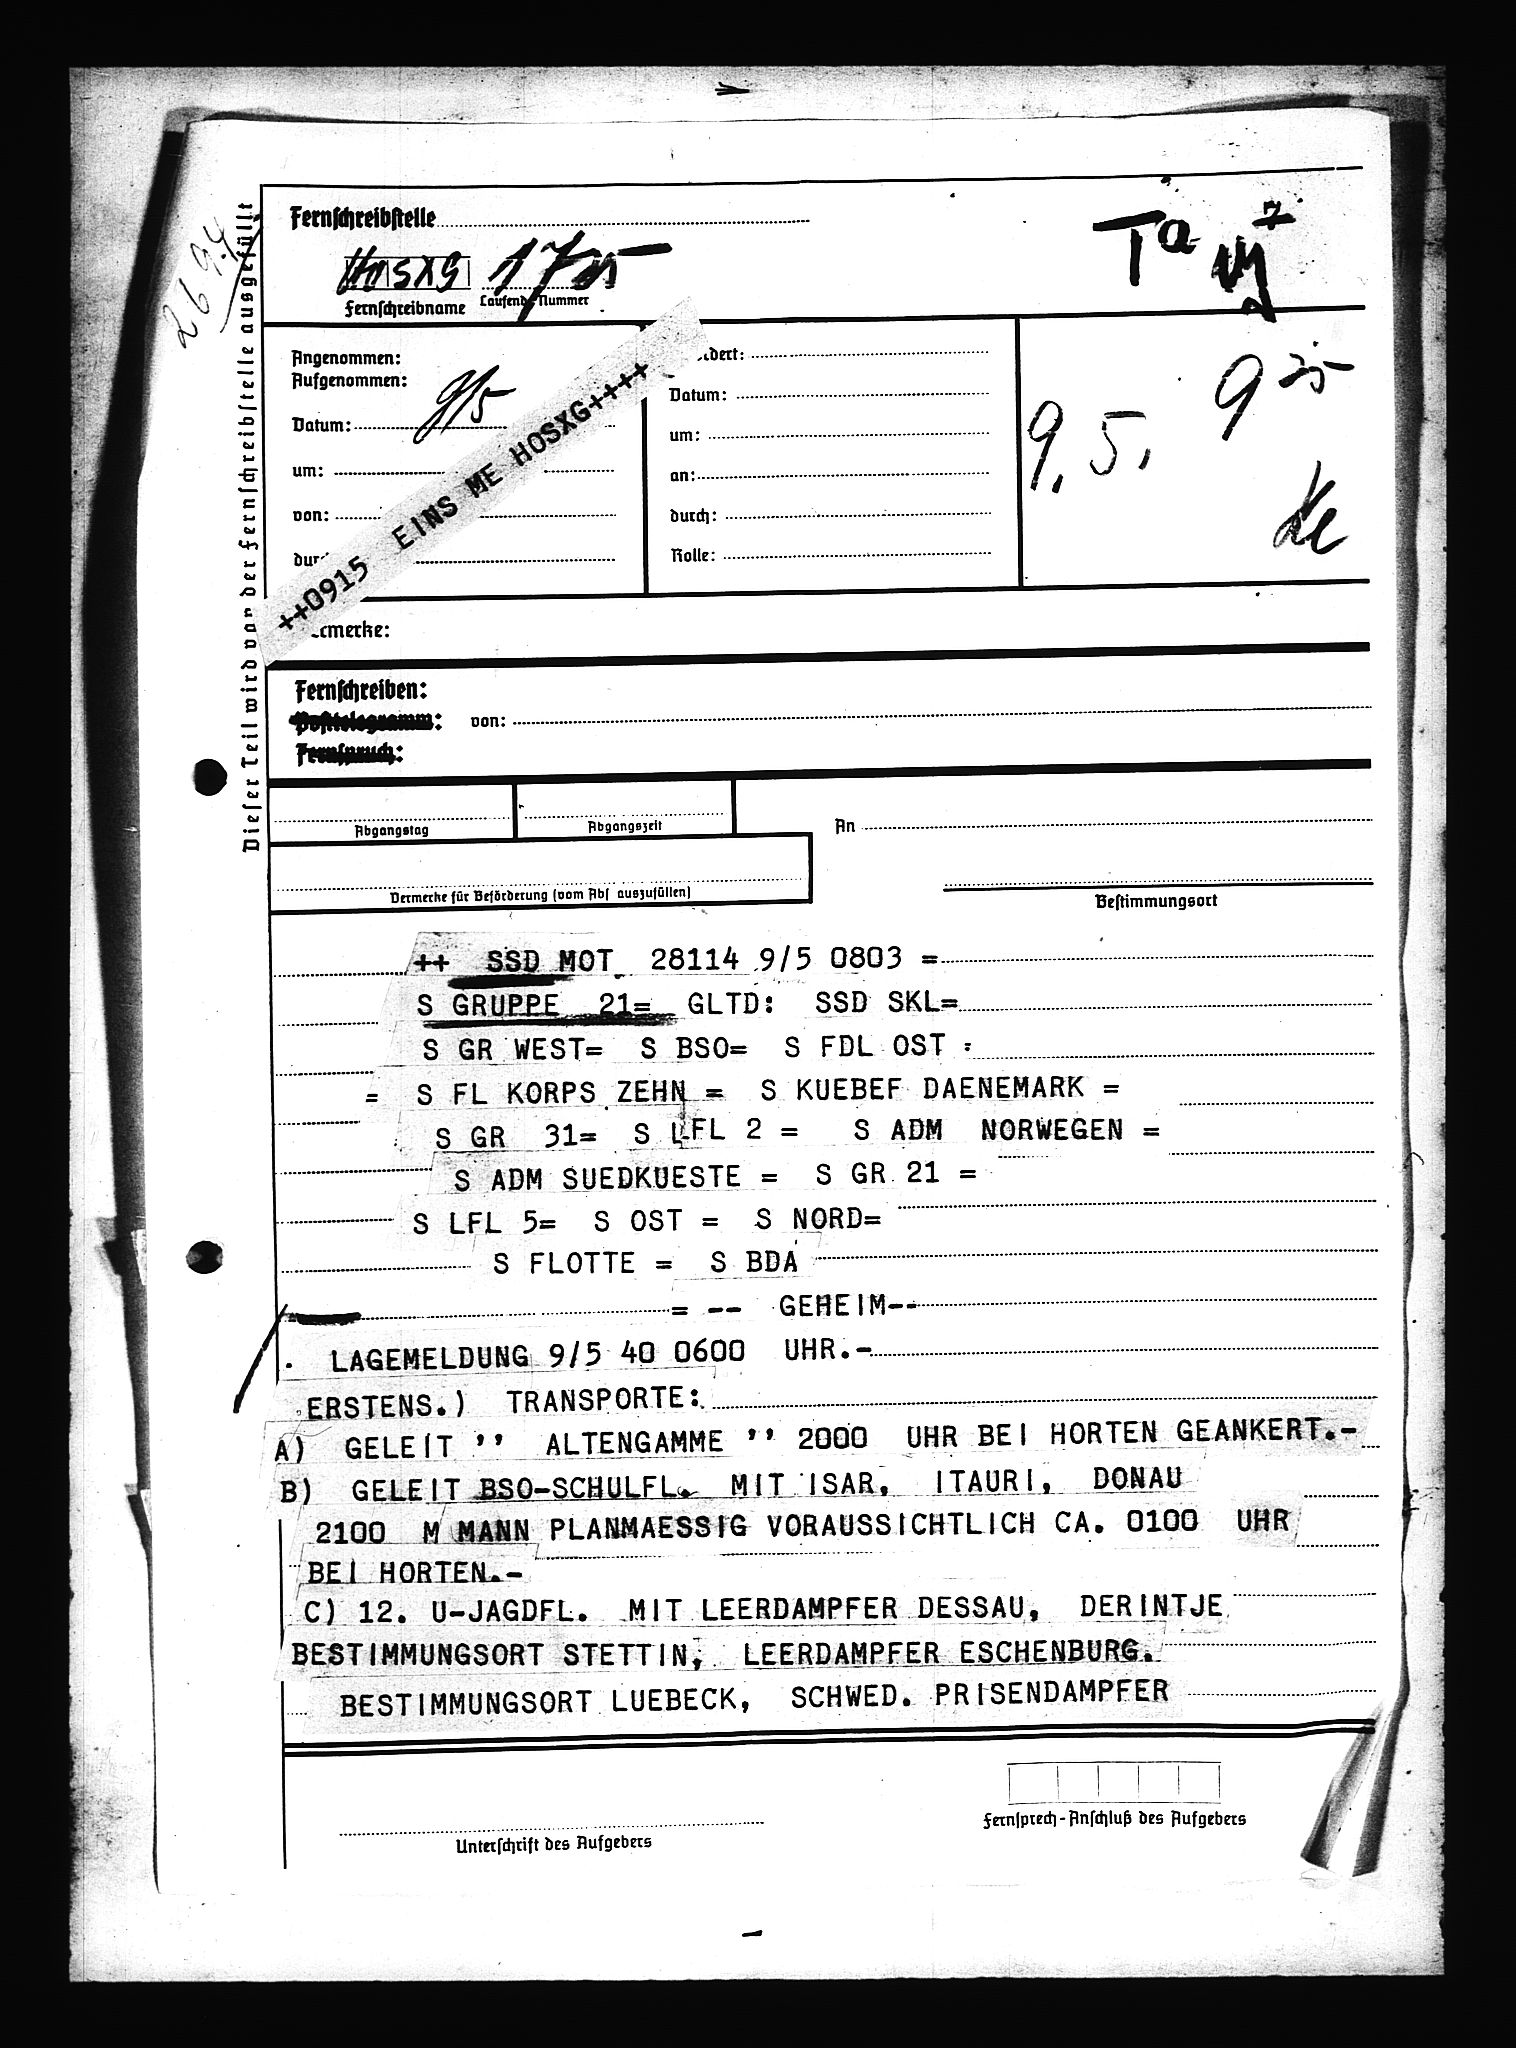 Dieser Teil wird von der Fernschreibstelle ausgefüllt
Fernschreibstelle
HOSXG
Fernschreibname Laufende Nummer
Angenommen:
Aufgenommen:
Datum: 9/5
um:
von:
++0915 EINS ME HOSXG++++
Datum:
um:
an:
durch:
Rolle:
9.5. 9 25
Fernschreiben:
Posttelegramm: von:
Fernspruch:
Abgangstag
Abgangszeit
An
Vermerke für Beförderung (vom Abs auszufüllen)
Bestimmungsort
++ SSD MOT 28114 9/5 0803 =
S GRUPPE 21= GLTD: SSD SKL=
S GR WEST= S BSO= S FDL OST :
= S FL KORPS ZEHN = S KUEBEF DAENEMARK =
S GR 31= S LFL 2 = S ADM NORWEGEN =
S ADM SUEDKUESTE = S GR 21 =
S LFL 5= S OST = S NORD=
S FLOTTE = S BDA
= -- GEHEIM--
. LAGEMELDUNG 9/5 40 0600 UHR.-
ERSTENS.) TRANSPORTE:
A) GELEIT '' ALTENGAMME '' 2000 UHR BEI HORTEN GEANKERT.-
B) GELEIT BSO-SCHULFL. MIT ISAR, ITAURI, DONAU
2100 M MANN PLANMAESSIG VORAUSSICHTLICH CA. 0100 UHR
BEI HORTEN.-
C) 12. U-JAGDFL. MIT LEERDAMPFER DESSAU, DERINTJE
BESTIMMUNGSORT STETTIN, LEERDAMPFER ESCHENBURG.
BESTIMMUNGSORT LUEBECK, SCHWED. PRISENDAMPFER
Unterschrift des Aufgebers
Fernsprech-Anschluß des Aufgebers